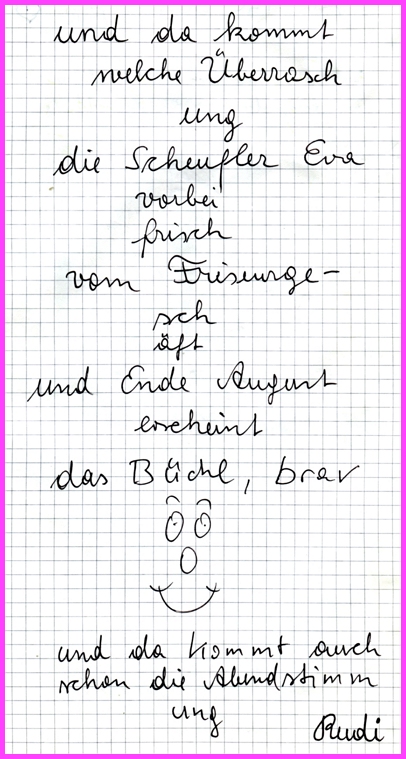 und da kommt
welche Überrasch
ung
die Scheufler Eva
vorbei
frisch
vom Friseurge-
sch
äft
und Ende August
erscheint
das Büchl, brav
und da kommt auch
schon die Abendstimm
ung
Rudi